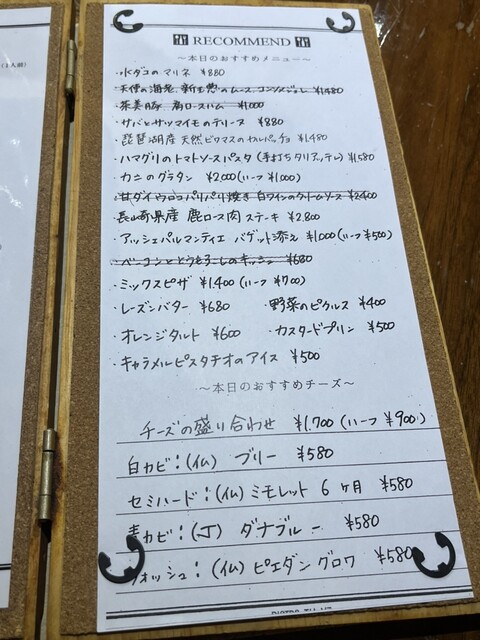 RECOMMEND
〜本日のおすすめメニュー〜
・水ダコのマリネ ¥880
・天使の海老、新玉葱のムース、コンソメジュレ ¥1,480
・茶美豚 肩ロースハム ¥1,000
・サバとサツマイモのテリーヌ ¥880
・琵琶湖産 天然ビワマスのカルパッチョ ¥1,480
・ハマグリのトマトソースパスタ (手打ちタリアッテレ) ¥1,580
・カニのグラタン ¥2,000 (ハーフ ¥1,000)
・甘ダイウロコパリパリ焼き 白ワインのクリームソース ¥2,400
・長崎県産 鹿ロース肉 ステーキ ¥2,800
・アッシェパルマンティエ バゲット添え ¥1,000 (ハーフ ¥500)
・ベーコンととうもろこしのキッシュ ¥680
・ミックスピザ ¥1,400 (ハーフ ¥700)
・レーズンバター ¥680 ・野菜のピクルス ¥400
・オレンジタルト ¥600 ・カスタードプリン ¥500
・キャラメルピスタチオのアイス ¥500
〜本日のおすすめチーズ〜
チーズの盛り合わせ ¥1,700 (ハーフ ¥900)
白カビ:(仏) ブリー ¥580
セミハード:(仏) ミモレット 6ヶ月 ¥580
青カビ:(J) ダナブルー ¥580
ォッシュ:(仏) ピエダングロワ ¥580